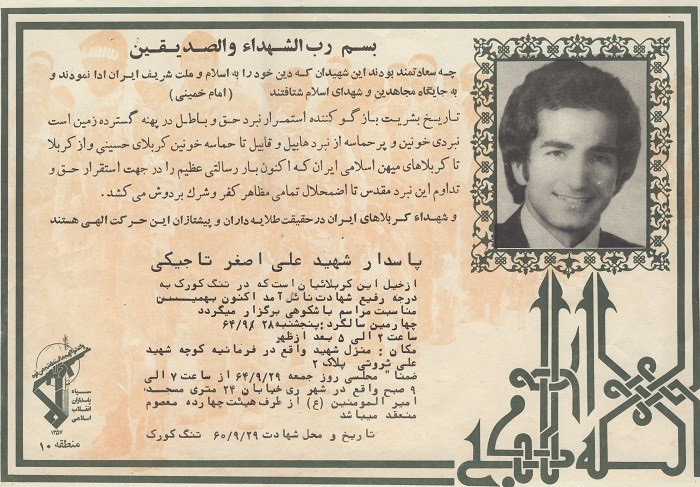 بسم رب الشهداء والصدیقین
چه سعادتمند بودند این شهیدان که دین خود را به اسلام و ملت شریف ایران ادا نمودند و
به جایگاه مجاهدین و شهدای اسلام شتافتند (امام خمینی)
تاریخ بشریت بازگو کننده استمرار نبرد حق و باطل در پهنه گسترده زمین است
نبردی خونین و پر حماسه از نبرد هابیل و قابیل تا حماسه خونین کربلای حسینی و از کربلا
تا کربلاهای میهن اسلامی ایران که اکنون بار رسالتی عظیم را در جهت استقرار حق و
تداوم این نبرد مقدس تا اضمحلال تمامی مظاهر کفر و شرک بردوش می کشد.
و شهداء کربلاهای ایران در حقیقت طلایه داران و پیشتازان این حرکت الهی هستند
پاسدار شهید علی اصغر تاجیکی
از خیل این کربلائیان است که در تنگ کورک به
درجه رفیع شهادت نائل آمد اکنون بهمین
مناسبت مراسم باشکوهی برگزار میگردد
چهارمین سالگرد: پنجشنبه ۶۴/۹/۲۸
ساعت ۲ الی ۵ بعد ازظهر
مکان: منزل شهید واقع در فرمانیه کوچه شهید
علی ثروتی پلاک ۲
ضمنا" مجلسی روز جمعه ۶۴/۹/۲۹ از ساعت ۷ الی
۹ صبح واقع در شهر ری خیابان ۲۴ متری مسجد
امیر المومنین (ع) از طرف هیئت چهارده معصوم
منعقد میباشد
تاریخ و محل شهادت ۶۰/۹/۲۹ تنگ کورک
سپاه
پاسداران
انقلاب
اسلامی
۱۳۵۷
منطقه ۱۰